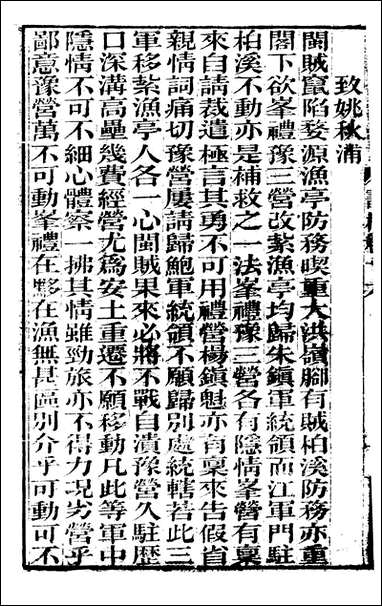 致姚秋浦
閩賊竄陷婺源漁亭防務喫重大洪嶺腳有賊柏溪防務亦重
閣下欲峯禮豫三營改紮漁亭均歸朱鎮軍統領而江軍門駐
柏溪不動亦是補救之一法峯禮豫三營各有隱情峯營有稟
來自請裁遣極言其勇不可用禮營楊鎮魁亦有稟來告假省
親情詞痛切豫營屢請歸鮑軍統領不願歸別處統轄若此三
軍移紮漁亭人各一心閩賊果來必將不戰自潰豫營久駐歷
口深溝高壘幾費經營尤爲安土重遷不願移動凡此等軍中
隱情不可不細心體察一拂其情雖勁旅亦不得力況劣營乎
鄙意豫營萬不可動峯禮在黟在漁無甚區別介乎可動可不